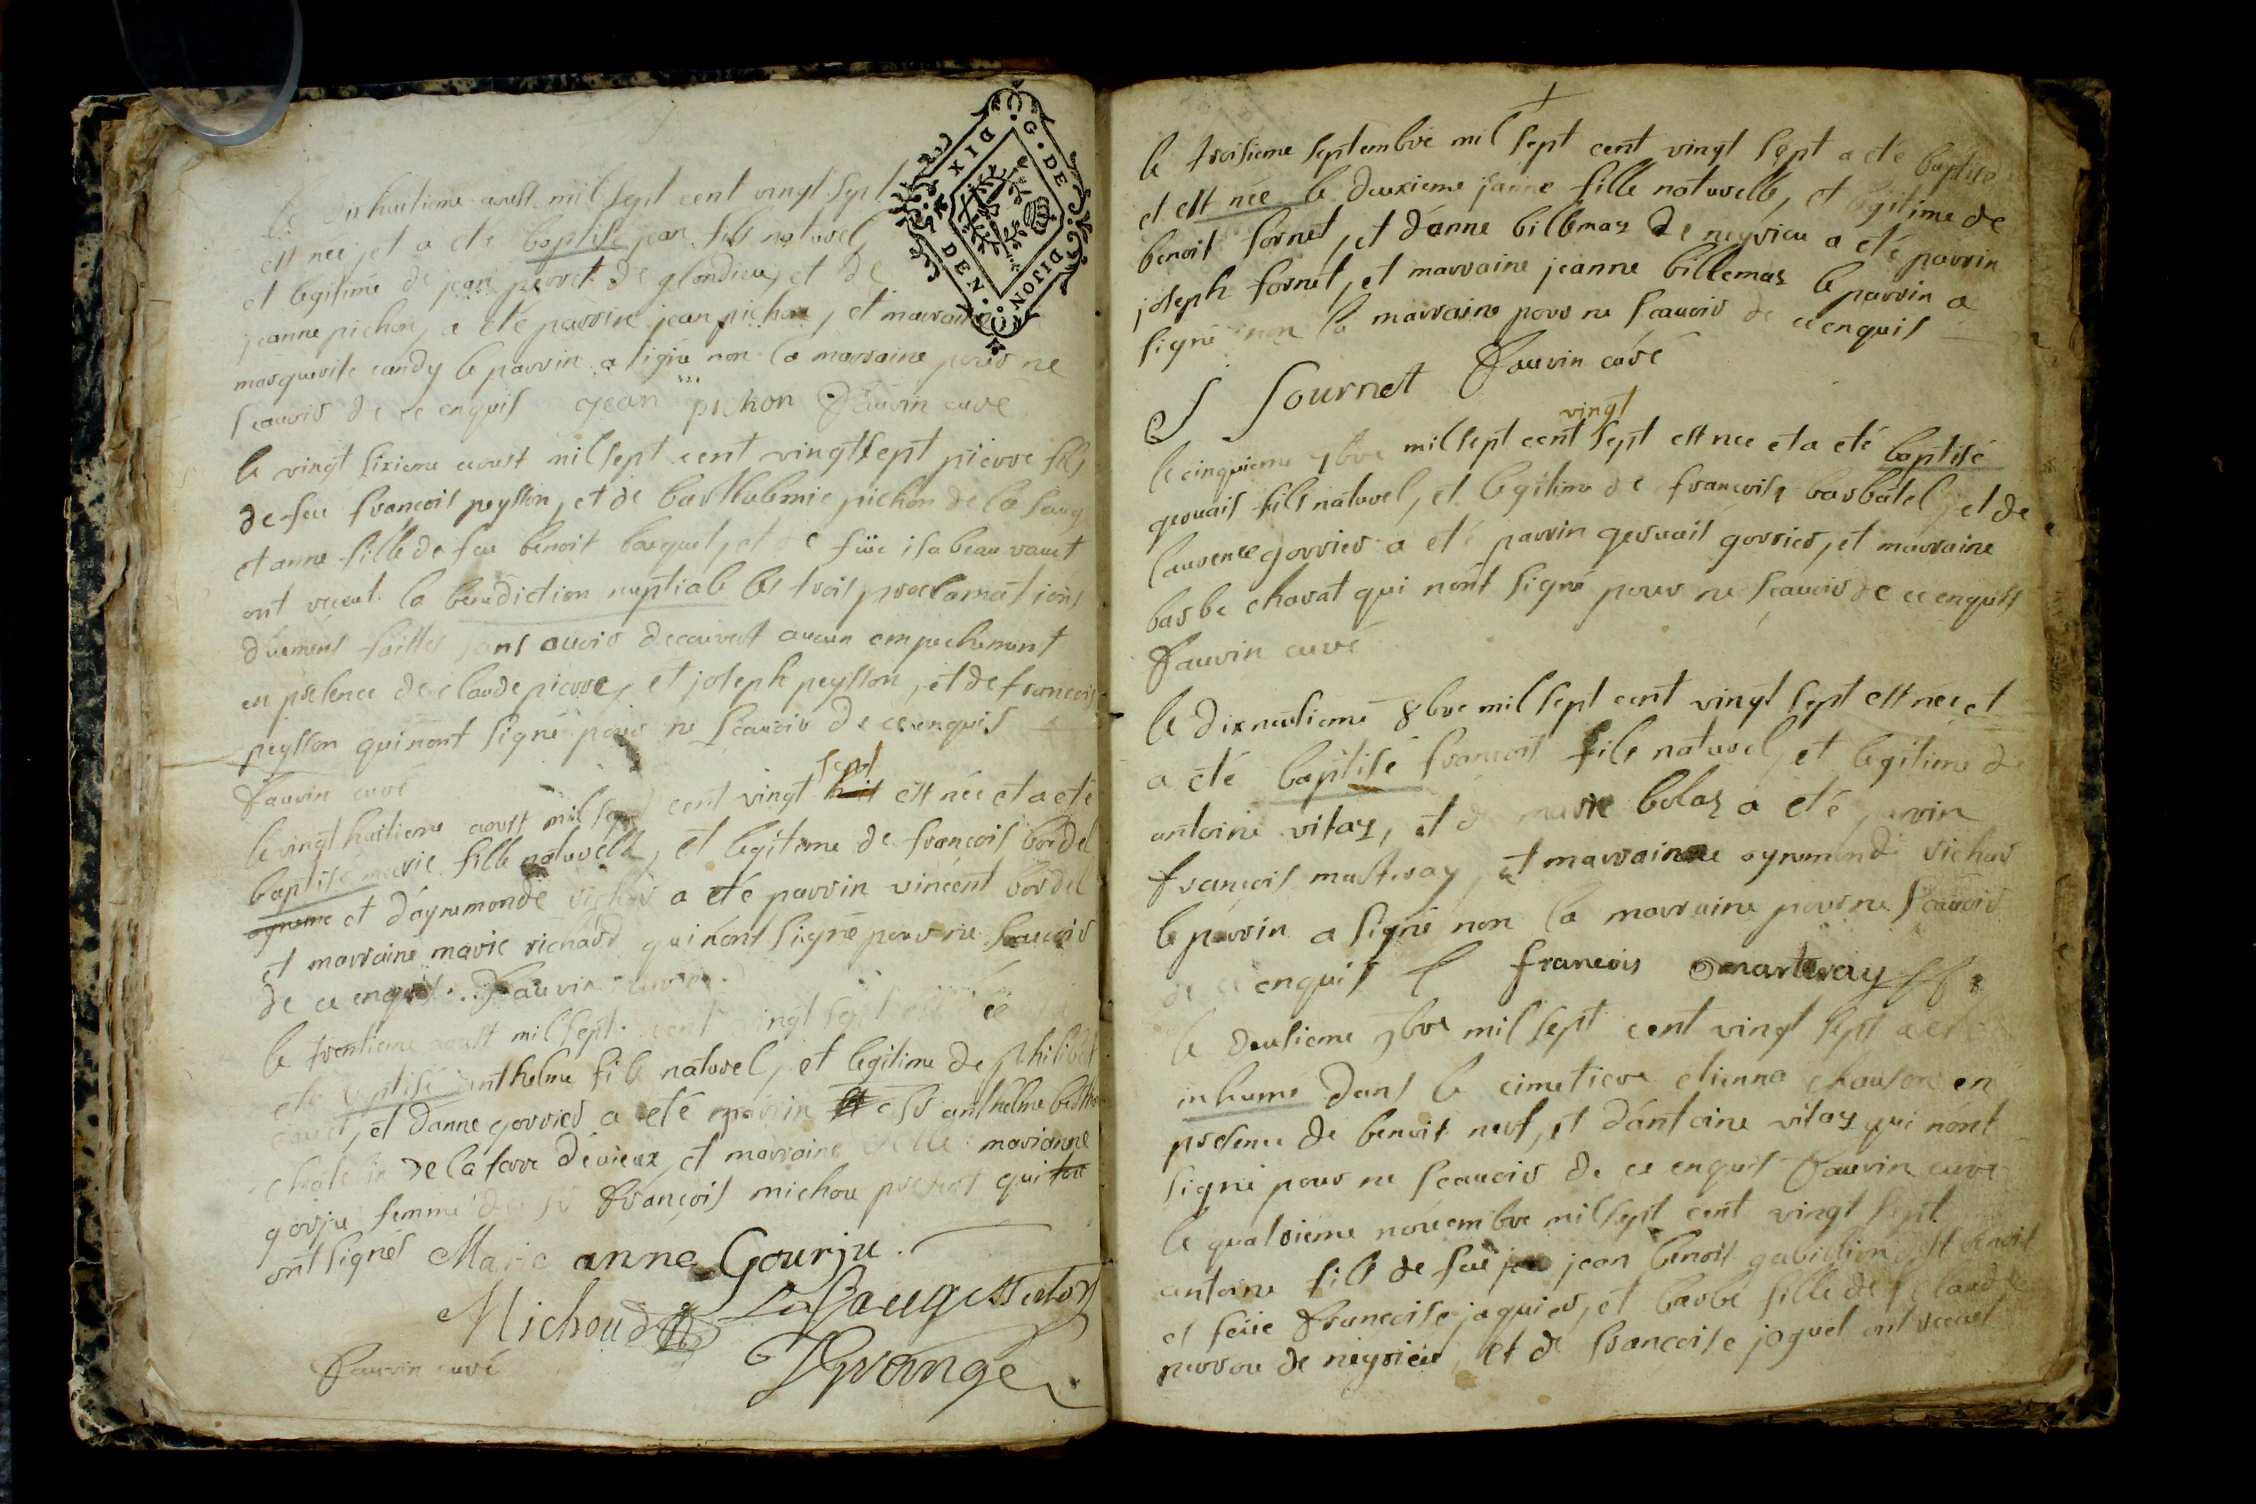 G. DE DIJON
DIX DEN.
huitieme aoust mil sept cent vingt sept
est nee, et a eté baptisé jean fils naturel,
et legitime de jean perret de glandieu, et de
jeanne pichon, a eté parrin jean pichon, et marraine
marguerite candy le parrin a signé non la marraine pour ne
scauoir de ce enquis jean pichon fauvin curé
le vingt sixieme aoust mil sept cent vingt sept pierre fils
de feu françois peysson, et de barthelemie pichon de la
et anne fille de feu benoit et de füe isabeau
ont receut la benediction nuptiale les trois proclamations
düement faittes sans auoir decouvert aucun empechement
en presence de claude pierre, et joseph peysson, et de francois
peysson qui nont signé pour ne scauoir de ce enquis
fauvin curé
le vingt huitieme aoust mil sept cent vingt sept est née et a eté
baptisé marie fille naturelle, et legitime de françois bordel
et d'aynemonde richar a eté parrin vincent bordel
et marraine marie richard qui nont signé pour ne scauoir
de ce enquis fauvin curé
le trentieme aoust mil sept cent vingt sept
eté baptisé anthelme fils naturel, et legitime de philibert
et danne gorrier a eté parrin sr anthelme
de la et marraine delle marianne
gorju femme de sr françois michou present qui
ont signés Marie anne Gourju
Michoud
Fauvin curé Grange
le troisieme septembre mil sept cent vingt sept a eté baptisé
et est née le deuxieme janne fille naturelle, et legitime de
benoit fornet, et d'anne billemaz de neyrieu a eté parrin
joseph fornet, et marraine jeanne billemaz le parrin a
signé non la marraine pour ne scauoir de ce enquis
J fournet fauvin curé
le cinquieme 7bre mil sept cent vingt sept est nee et a eté baptisé
geruais fils naturel, et legitime de françois barbatel, et de
laurence gorrier a eté parrin geruais gorrier, et marraine
barbe charat qui nont signé pour ne scauoir de ce enquis
fauvin curé
le dixneufieme 8bre mil sept cent vingt sept est née et
a eté baptisé francois fils naturel, et legitime de
antoine vitoz, et de marie bolaz a eté parrin
françois marteray, et marraine aynemonde richar
le parrin a signé non la marraine pour ne scauoir
de ce enquis francois marteray
le deusieme 9bre mil sept cent vingt sept a eté
inhumé dans le cimetiere etienne en
presence de benoit et d'antoine vitoz qui nont
signé pour ne scauoir de ce enquis fauvin curé
le quatrieme nouembre mil sept cent vingt sept
antoine fils de feu jean benoit
et feüe francoise jaquier, et barbe fille de claude
perrou de neyrieu et de francoise joguet ont receut